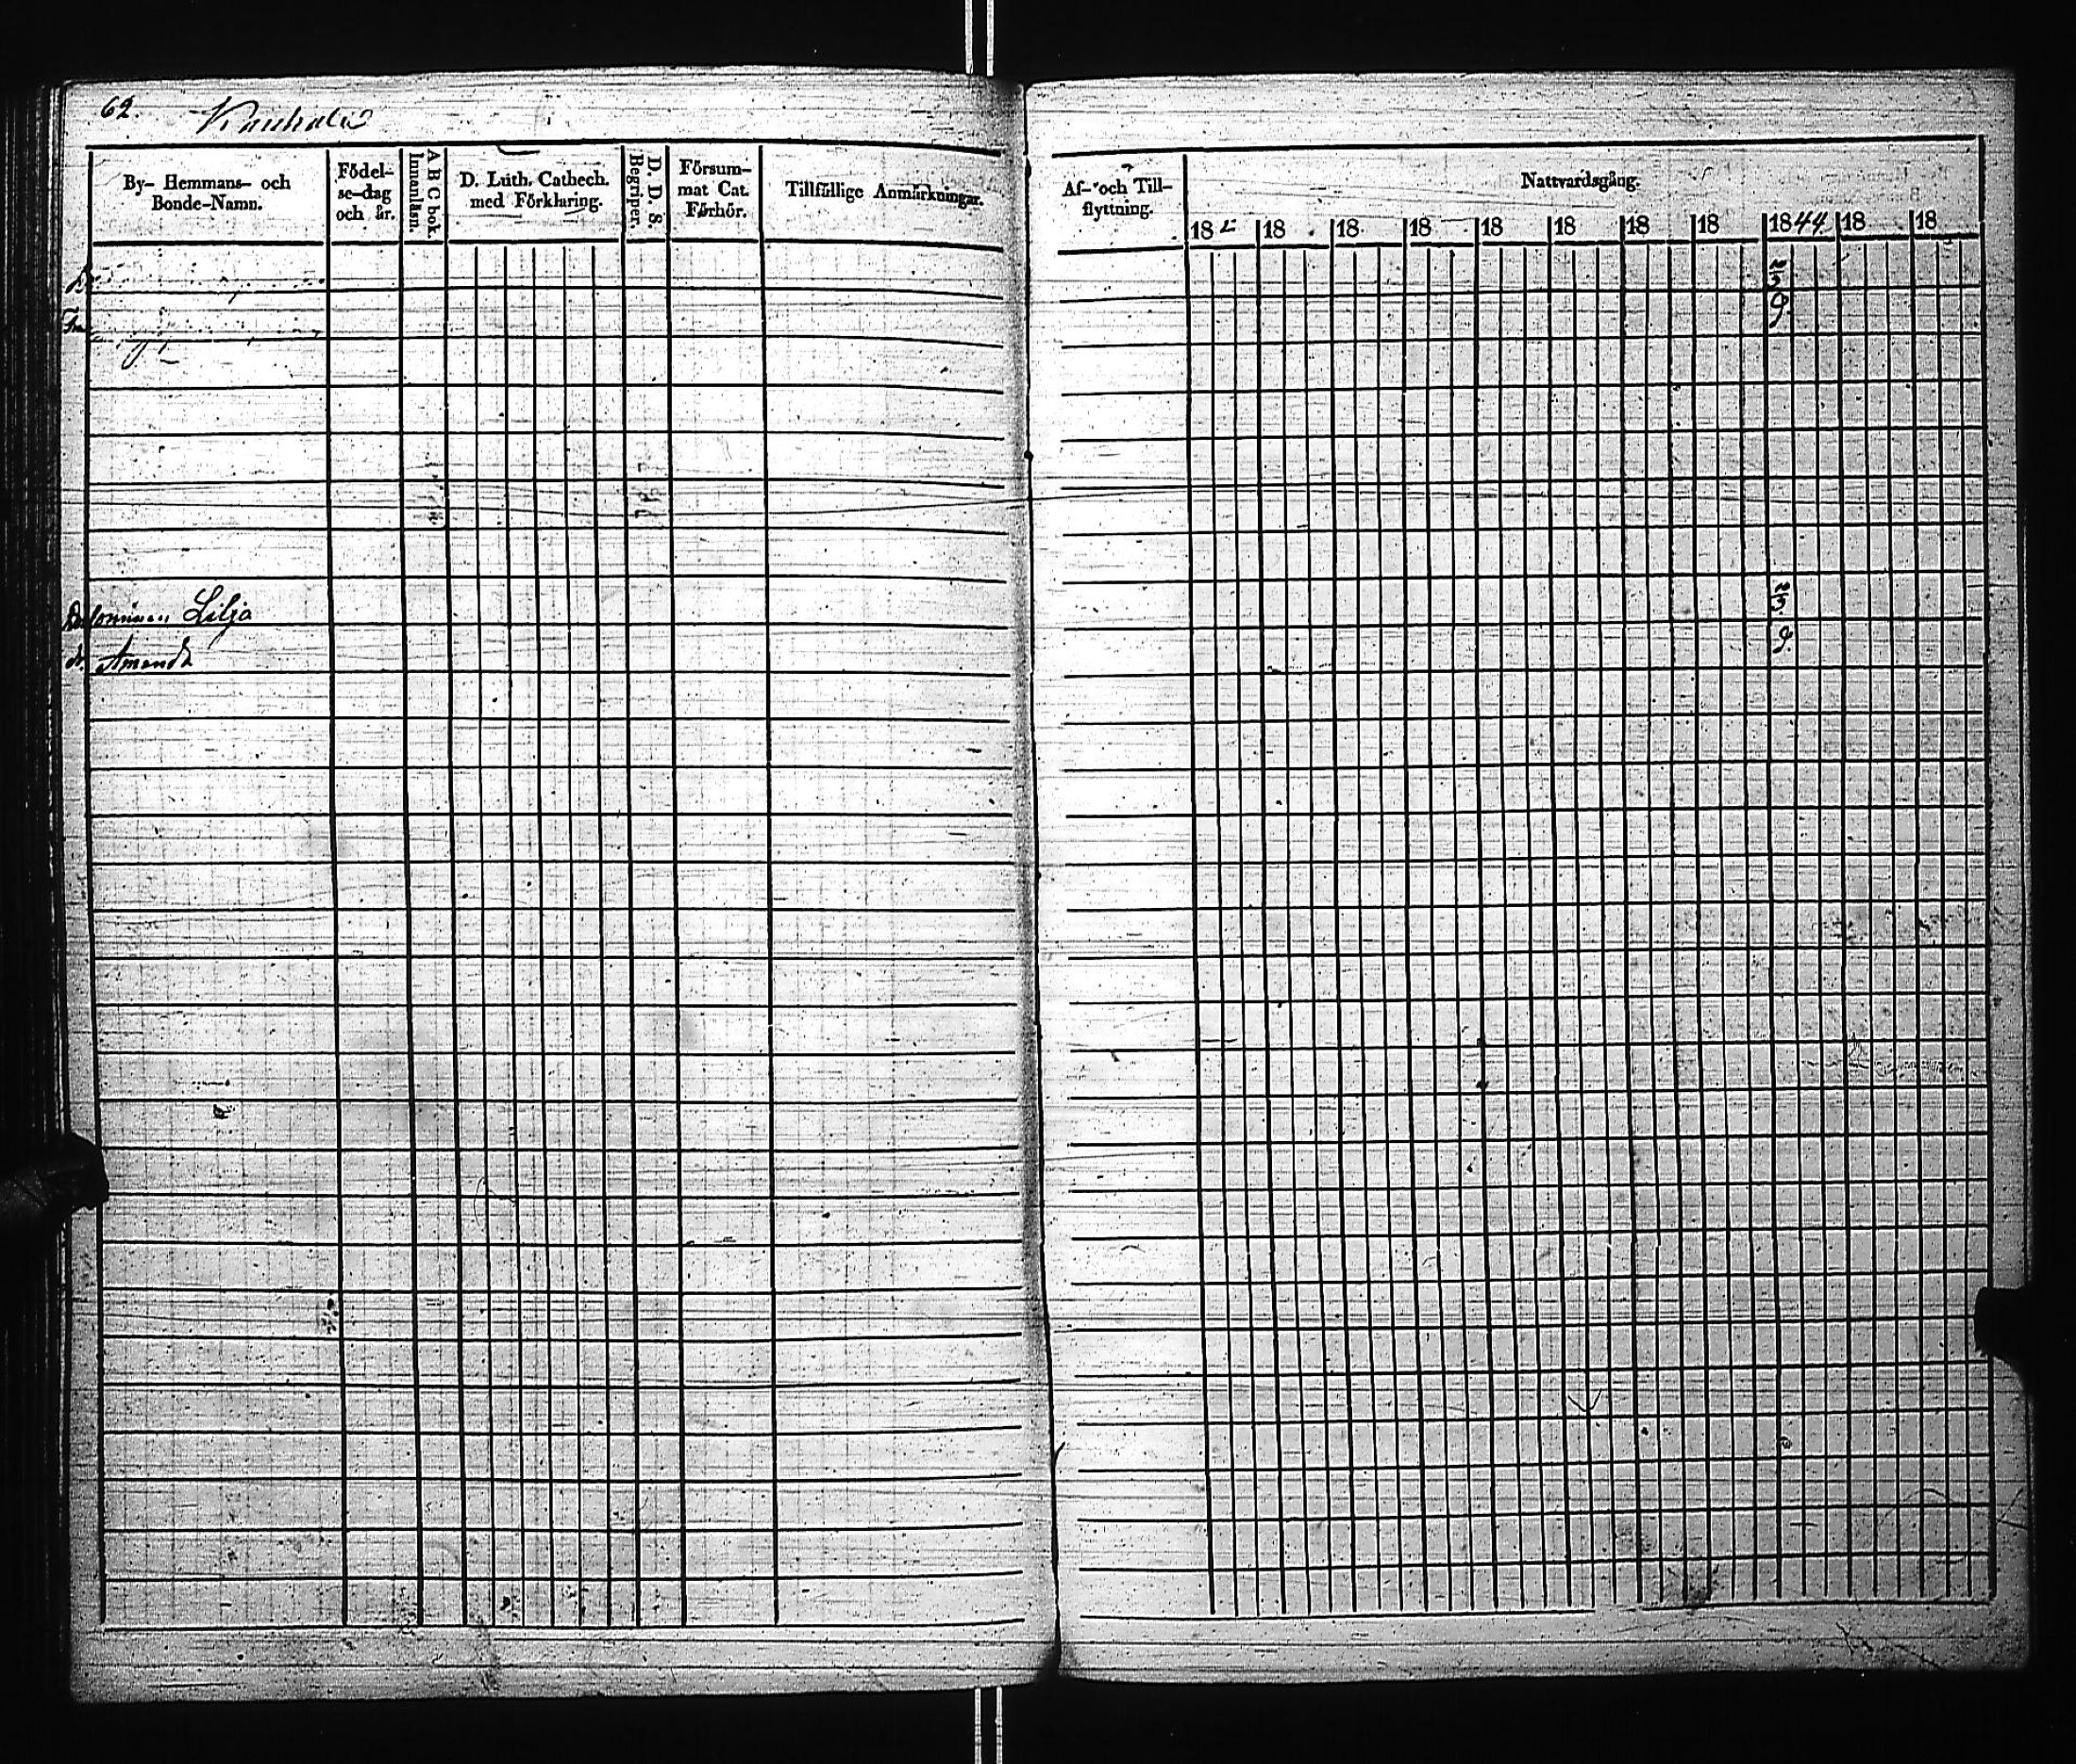 62.
By- Hemmans- och Bonde-Namn.
Födel-se-dag och år.
A B C bok. Innanläsn.
D. Luth. Cathech. med Förklaring.
D. D. S. Begriper.
Försum-mat Cat. Förhör.
Tillfällige Anmärkningar.
Af- och Till-flyttning.
Nattvardsgång.
18 18 18 18 18 18 18 18 1844 18 18
Lilja
Amanda